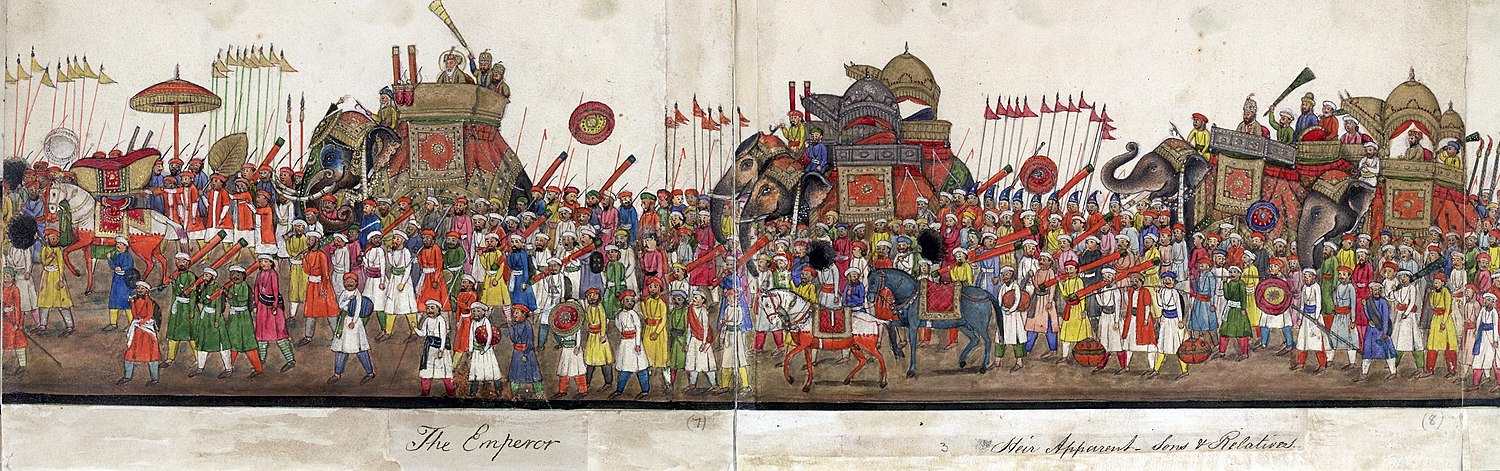 The Emperor
(7)
3
Heir Apparent - Sons & Relatives
(8)